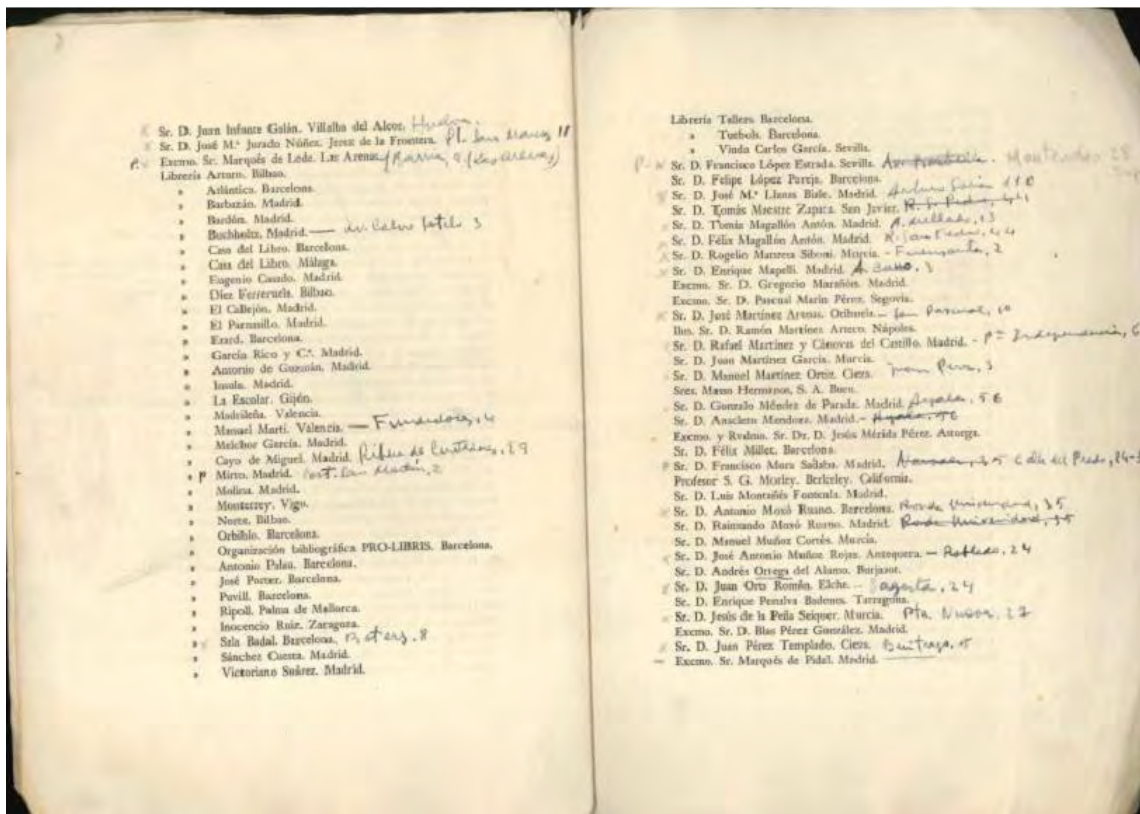 Sr. D. Juan Infante Galán. Villalba del Alcor. Huelva.
Sr. D. José M.ª Jurado Núñez. Jerez de la Frontera. Pl. San Marcos 11
P. Excmo. Sr. Marqués de Lede. Las Arenas (Las Arenas)
Librería Arturo. Bilbao.
» Atlántica. Barcelona.
» Barbazán. Madrid.
» Bardón. Madrid.
» Buchholtz. Madrid. — Av. Calvo Sotelo 3
» Casa del Libro. Barcelona.
» Casa del Libro. Málaga.
» Eugenio Casado. Madrid.
» Díez Ferreruela. Bilbao.
» El Callejón. Madrid.
» El Parnasillo. Madrid.
» Erard. Barcelona.
» García Rico y C.ª Madrid.
» Antonio de Guzmán. Madrid.
» Insula. Madrid.
» La Escolar. Gijón.
» Madrileña. Valencia.
» Manuel Martí. Valencia. — Embajador, 4
» Melchor García. Madrid.
» Cayo de Miguel. Madrid. Ribera de Curtidores, 29
» P Mirto. Madrid. Cost. San Martín, 2
» Molina. Madrid.
» Monterrey. Vigo.
» Norte. Bilbao.
» Orbiblo. Barcelona.
» Organización bibliográfica PRO-LIBRIS. Barcelona.
» Antonio Palau. Barcelona.
» José Porter. Barcelona.
» Puvill. Barcelona.
» Ripoll. Palma de Mallorca.
» Inocencio Ruiz. Zaragoza.
» Sala Badal. Barcelona. 8
» Sánchez Cuesta. Madrid.
» Victoriano Suárez. Madrid.
Librería Tallers. Barcelona.
» Turbols. Barcelona.
» Viuda Carlos García. Sevilla.
P Sr. D. Francisco López Estrada. Sevilla. Monteverdes 28
Sr. D. Felipe López Pareja. Barcelona.
Sr. D. José M.ª Llanas Bisle. Madrid. Arturo Soria 110
Sr. D. Tomás Maestre Zapata. San Javier. R. S. Pedro, 44
Sr. D. Tomás Magallón Antón. Madrid. A. Arellado, 13
Sr. D. Félix Magallón Antón. Madrid. R. San Pedro, 44
Sr. D. Rogelio Manresa Siboni. Murcia. - Fuensanta, 2
Sr. D. Enrique Mapelli. Madrid. A. 3
Excmo. Sr. D. Gregorio Marañón. Madrid.
Excmo. Sr. D. Pascual Marín Pérez. Segovia.
Sr. D. José Martínez Arenas. Orihuela. - San Pascual, 10
Ilmo. Sr. D. Ramón Martínez Artero. Nápoles.
Sr. D. Rafael Martínez y Cánovas del Castillo. Madrid. - Pª Independencia, 6
Sr. D. Juan Martínez García. Murcia.
Sr. D. Manuel Martínez Ortiz. Cieza. Juan Pérez, 3
Sres. Masso Hermanos, S. A. Bueu.
Sr. D. Gonzalo Méndez de Parada. Madrid. Ayala, 56
Sr. D. Anacleto Mendoza. Madrid. - Ayala, 56
Excmo. y Rvdmo. Sr. Dr. D. Jesús Mérida Pérez. Astorga.
Sr. D. Félix Millet. Barcelona.
P Sr. D. Francisco Mora Sallaba. Madrid. Calle del Prado, 24-3
Profesor S. G. Morley. Berkeley. California.
Sr. D. Luis Montañés Fontenla. Madrid.
Sr. D. Antonio Moxó Ruano. Barcelona. Ronda Universidad, 35
Sr. D. Raimundo Moxó Ruano. Madrid. Ronda Universidad, 35
Sr. D. Manuel Muñoz Cortés. Murcia.
Sr. D. José Antonio Muñoz Rojas. Antequera. — Robledo, 24
Sr. D. Andrés Ortega del Alamo. Burjasot.
Sr. D. Juan Orts Román. Elche. - Sagasta, 24
Sr. D. Enrique Penalva Badenes. Tarragona.
Sr. D. Jesús de la Peña Seiquer. Murcia. Pta. Nueva, 27
Excmo. Sr. D. Blas Pérez González. Madrid.
Sr. D. Juan Pérez Templado. Cieza. Buitrago, 5
— Excmo. Sr. Marqués de Pidal. Madrid. —